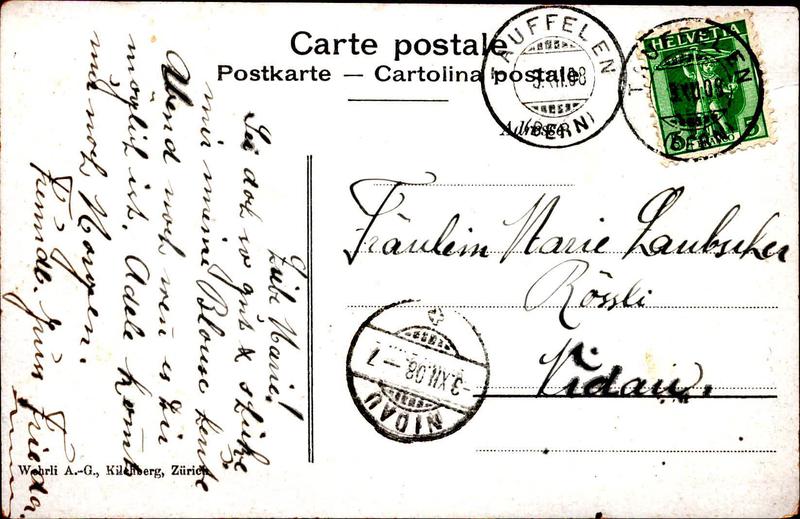 Carte postale
Postkarte — Cartolina postale
Adresse
TÄUFFELEN
3.XII.08
(BERN)
TÄUFFELEN
XII.08
(BERN)
HELVETIA
5
5
Fräulein Marie Laubscher
Rössli
Nidau.
NIDAU
-3.XII.08-7
Liebe Marie!
Sei doch so gut & schicke
mir meine Blouse heute
Abend noch wen es Dir
möglich ist. Adele komt
nur noch Morgen.
Freundl. Gruss Frieda.
Wehrli A.-G., Kilchberg, Zürich